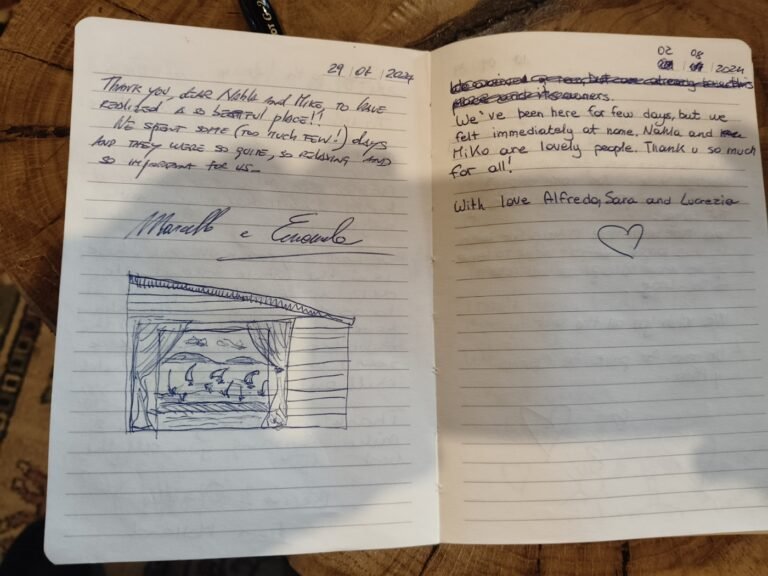 29 | 07 | 2024
THANK YOU, DEAR Nahla AND MIKE, TO HAVE
REALIZED A SO BEATIFUL PLACE!!
WE SPENT SOME (TOO MUCH FEW!) DAYS
AND THEY WERE SO QUITE, SO RELAXING AND
SO IMPORTANT FOR US_
Marcello e
02 08
| | 2024
owners.
We've been here for few days, but we
felt immediately at home. Nahla and
Miko are lovely people. Thank u so much
for all!
With love Alfredo, Sara and Lucrezia